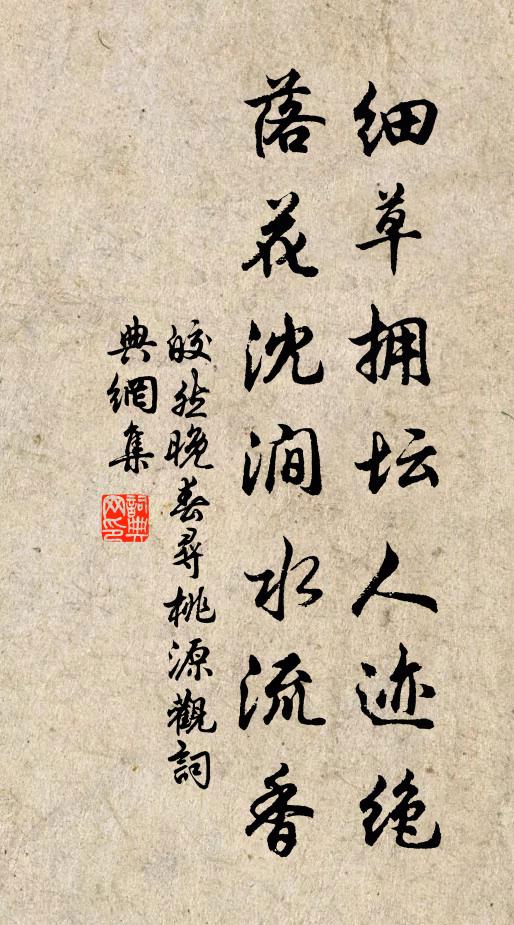 细草拥坛人迹绝
落花沈涧水流香
皎然晚春寻桃源觀詞
典網集
詞典网印